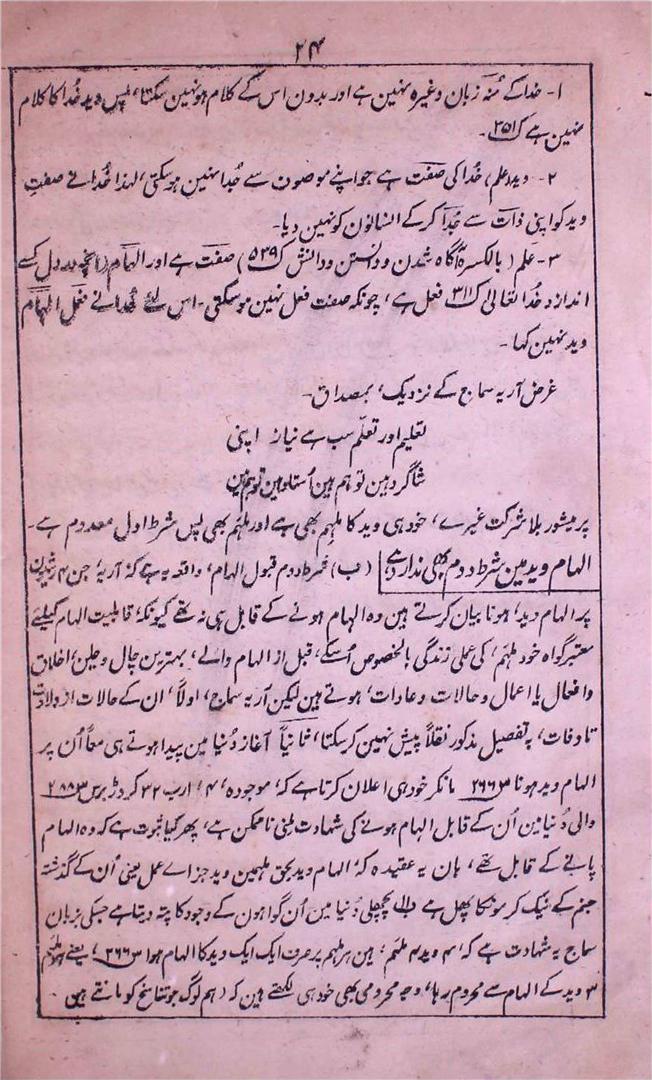 ۲۴
۱- خدا کے مُنہ زبان وغیرہ نہین ہے اور بدون اس کے کلام ہو نہین سکتا، پس وید خُدا کا کلام
نہین ہے ک ۲۵۱-
۲- وید (علم) خُدا کی صفت ہے جو اپنے موصوف سے جُدا نہین ہو سکتی، لہذا خُدا نے صفتِ
وید کو اپنی ذات سے جُدا کر کے انسانون کو نہین دیا-
۳- علم (بالکسر آگاہ شدن و دانستن و دانش ک ۵۳۹) صفت ہے اور الہام (انچہ در دل کسے
اندازد خُدا تعالیٰ ک ۳۱۱) فعل ہے، چونکہ صفت فعل نہین ہو سکتی- اس لئے خُدا نے فعل الہام
وید نہین کہا-
غرض آریہ سماج کے نزدیک، بمصداق-
تعلیم اور تعلّم سب ہے نیاز اپنی
شاگرد ہین تو ہم ہین اُستاد ہین تو ہم ہین
پرمیشور بلا شرکت غیرے، خود ہی وید کا ملہِم بھی ہے اور ملہَم بھی پس شرط اول معدوم ہے-
الہام وید مین شرط دوم بھی ندارد ہے (ب) شرط دوم قبول الہام، واقعہ یہ ہے کہ آریہ، جن ۴ رشیون
پر الہام وید، ہونا بیان کرتے ہین وہ الہام ہونے کے قابل ہی نہ تھے کیونکہ قابلیت الہام کیلئے
معتبر گواہ خود ملہَم، کی عملی زندگی بالخصوص اُسکے، قبل از الہام والے، بہترین چال و چلن، اخلاق
و افعال یا اعمال و حالات و عادات، ہوتے ہین لیکن آریہ سماج، اولاً، ان کے حالات از ولادت
تا وفات، بہ تفصیل مذکور نقلاً پیش نہین کر سکتا، ثانیاً آغاز دُنیا مین پیدا ہوتے ہی معاً اُن پر
الہام وید ہونا س ۲۶۶ مانکر خود ہی اعلان کرتا ہے کہ، موجودہ، ۴، ارب ۳۲ کروڑ برس
والی دُنیا مین اُن کے قابل الہام ہونے کی شہادت ملنی ناممکن ہے، پھر کیا ثبوت ہے کہ وہ الہام
پانے کے قابل تھے، ہان یہ عقیدہ کہ، الہام وید بحق ملہمین وید جزاے عمل یعنی اُن کے گذشتہ
جنم کے نیک کرمونکا پھل ہے والی پچھلی دُنیا مین اُن گواہون کے وجود کا پتہ دیتا ہے جسکی بزبان
سماج یہ شہادت ہے کہ، ۴ وید ۴ ملہَم، ہین ہر ملہم پر صرف ایک ایک وید کا الہام ہوا س ۲۶۶، یعنے ہر ملہم
۳ وید کے الہام سے محروم رہا، وجہ محرومی بھی خود ہی لکھتے ہین کہ (ہم لوگ جو تناسخ کو مانتے ہین